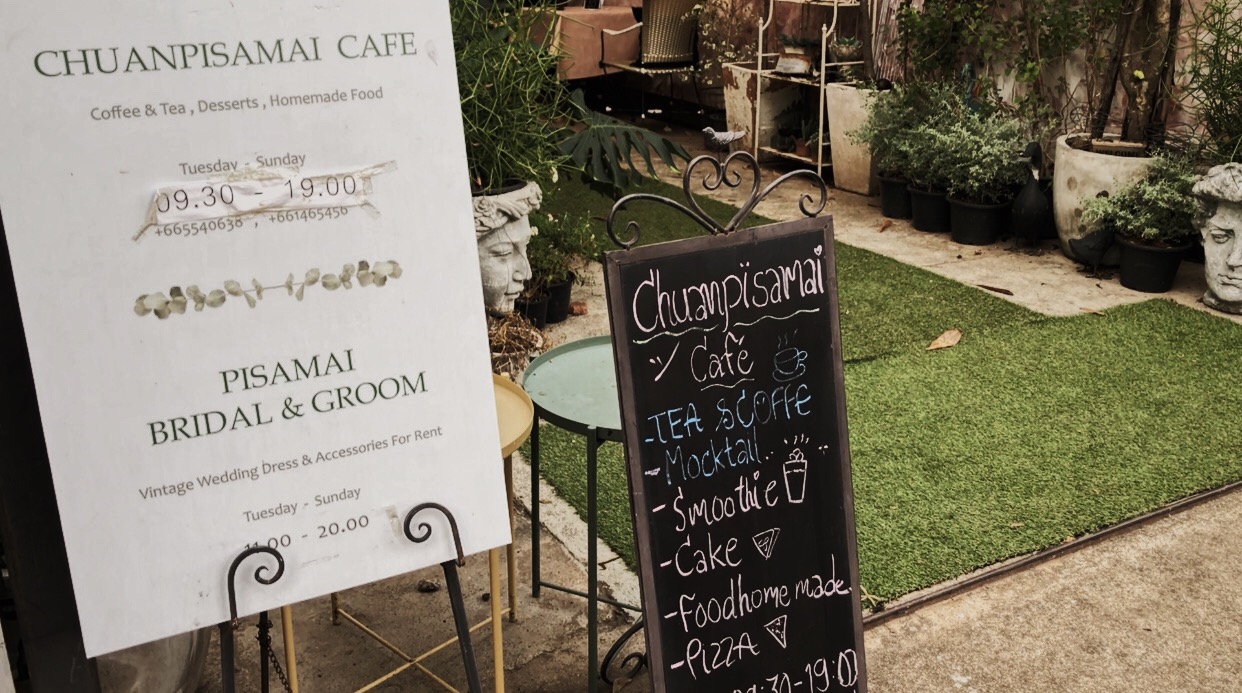 CHUANPISAMAI CAFE
Coffee & Tea , Desserts , Homemade Food
Tuesday - Sunday
09.30 - 19.00
+665540638 , +661465456
PISAMAI
BRIDAL & GROOM
Vintage Wedding Dress & Accessories For Rent
Tuesday - Sunday
11.00 - 20.00
Chuanpisamai
Cafe
-TEA & COFFE
-Mocktail..
-Smoothie
-Cake
-Foodhome made.
-PIZZA
09:30-19:00